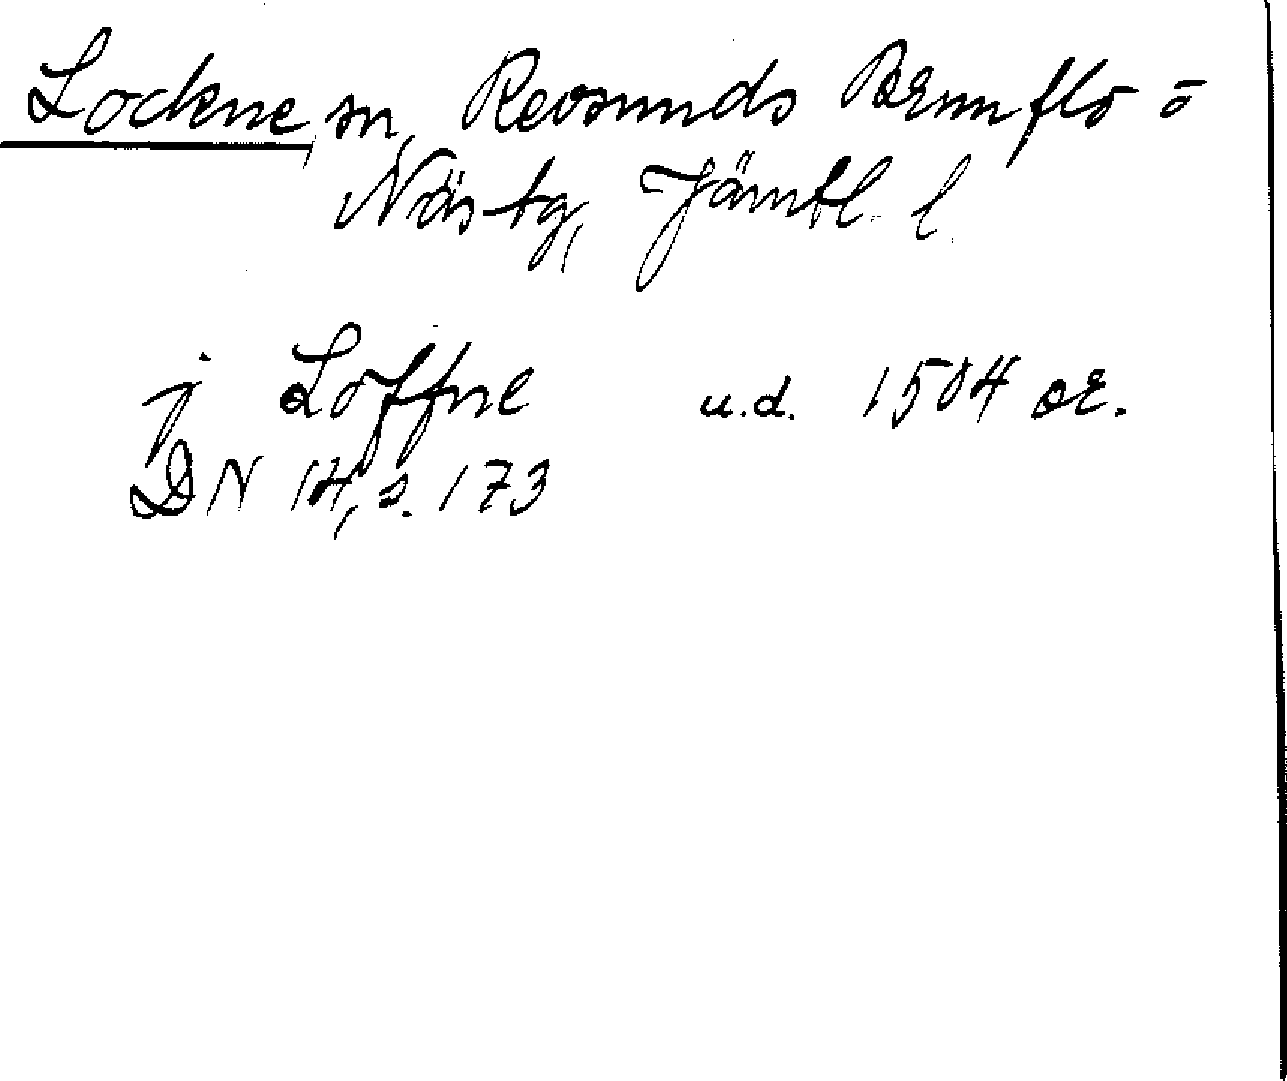 Lockne, sn, Revsunds Brunflo o
Näs tg, Jämtl. l.
j Loffne u.d. 1504 or.
DN 14, s. 173